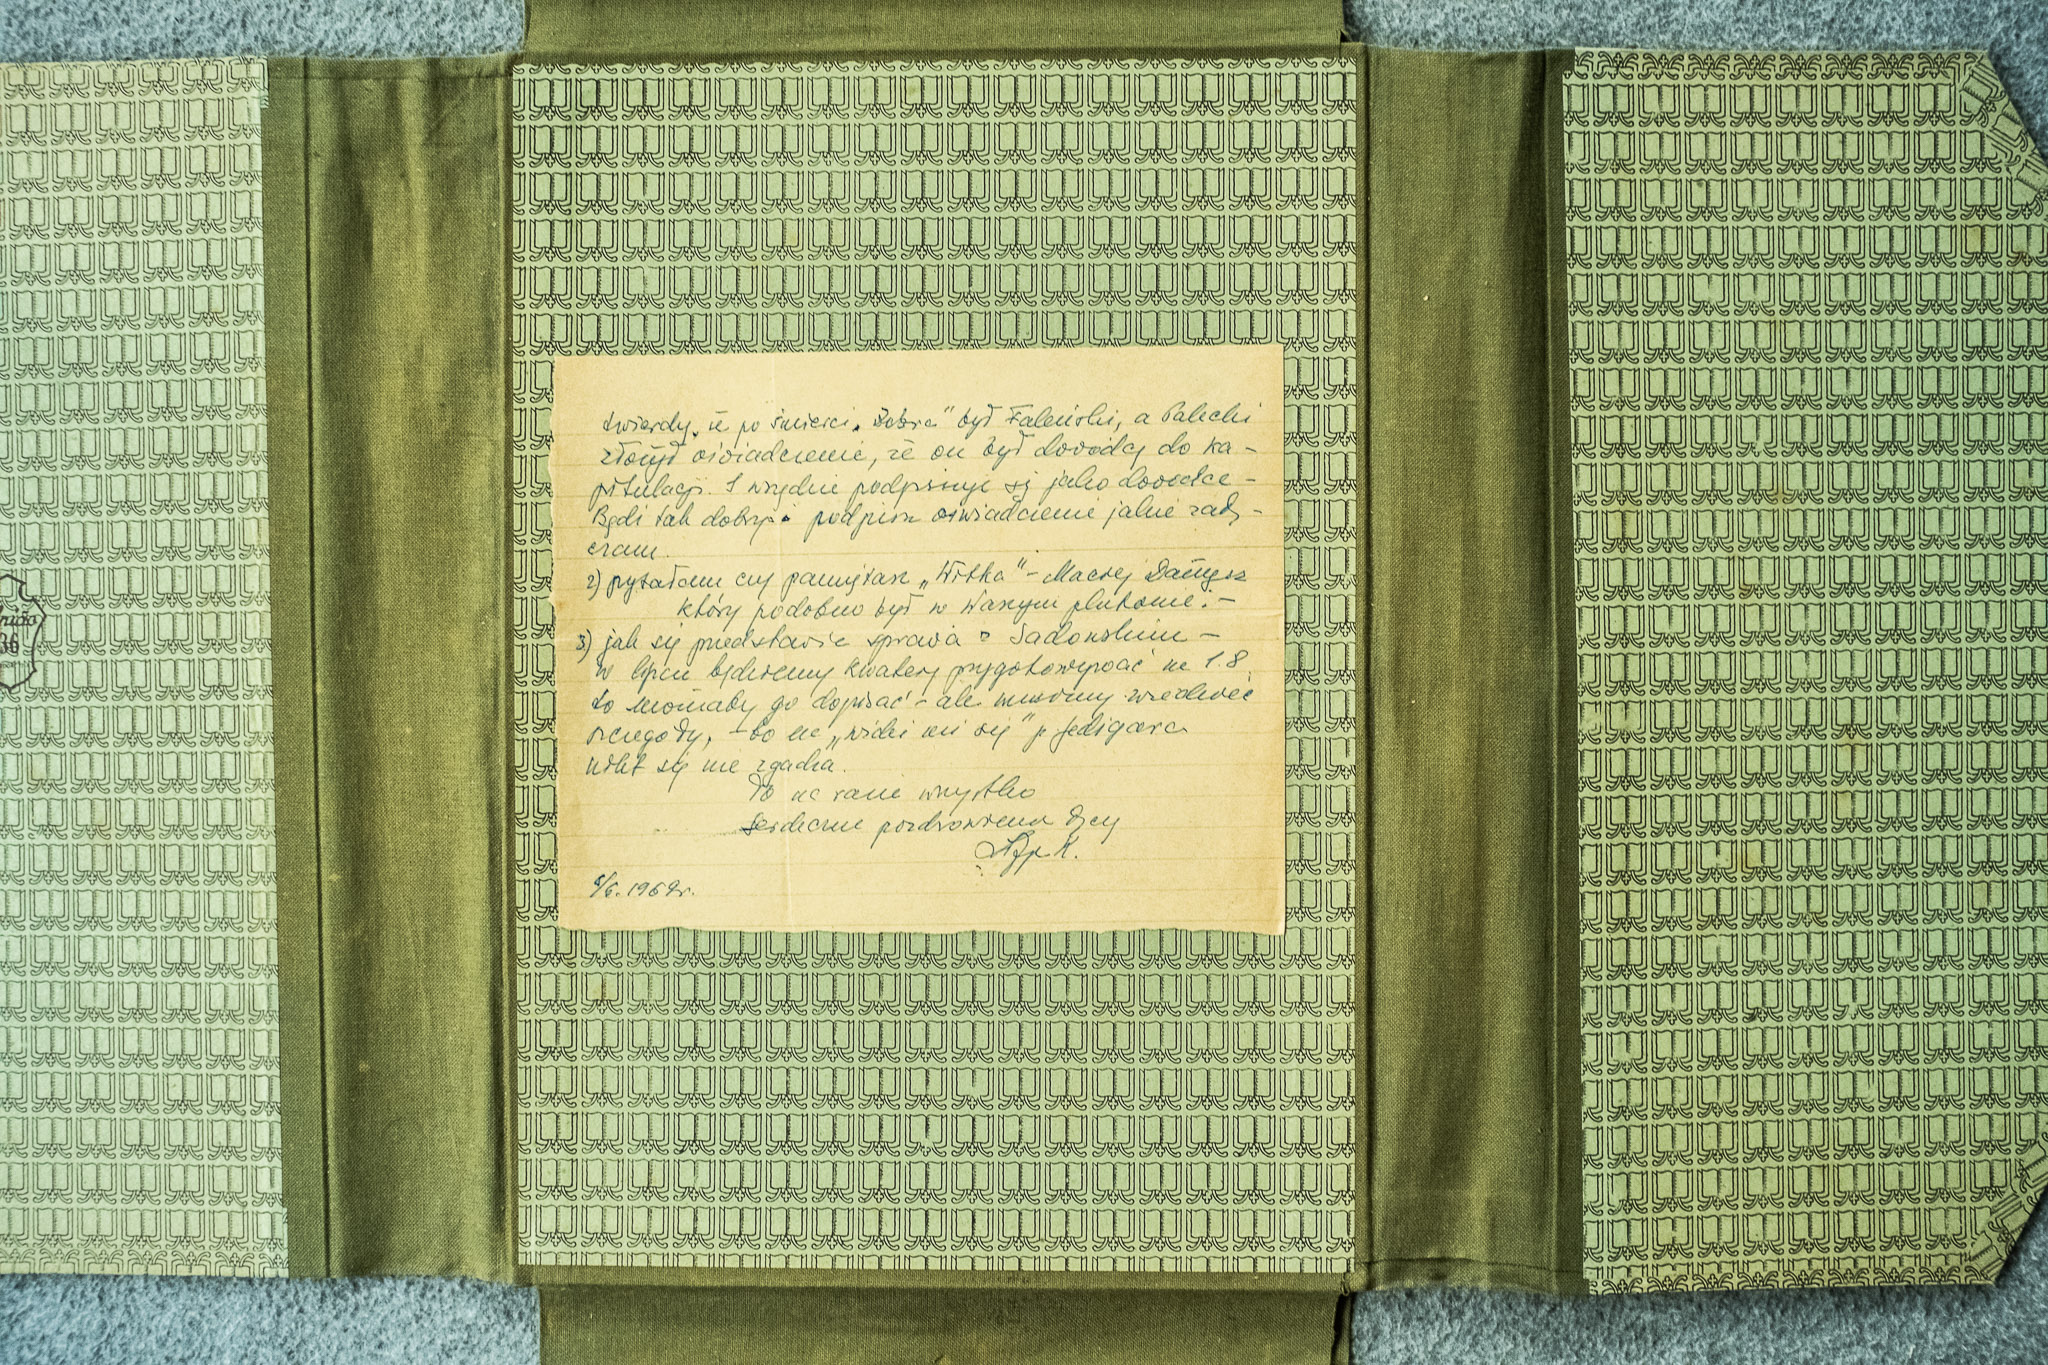 twierdzą, że po śmierci „Żobra" był Faleński, a Palecki
złożył oświadczenie, że on był dowódcą do ka-
pitulacji. I wszędzie podpisuje się jako dowódca -
Bądź tak dobry i podpisz oświadczenie jakie załą-
czam.
2) pytałem czy pamiętasz „Witka" - Maciej
który podobno był w Waszym plutonie. -
3) jak się przedstawia sprawa z Sadowskim -
W lipcu będziemy kwatery przygotowywać na 1.8
to możnaby go dopisać - ale musimy wiedzieć
szczegóły, - bo na „widzi mi się" p.
nikt się nie zgadza.
To na razie wszystko
Serdeczne pozdrowienia
1969r.
36